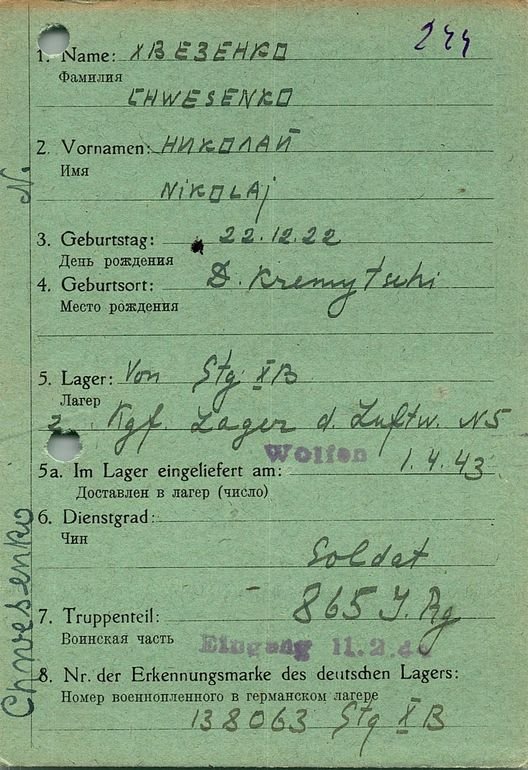 244
1. Name: ХВЕЗЕНКО
Фамилия
CHWESENKO
2. Vornamen: НИКОЛАЙ
Имя
NIKOLAj
3. Geburtstag: 22.12.22
День рождения
4. Geburtsort: D. Kremytschi
Место рождения
5. Lager: Von Stg XB
Лагер
z. Kgf. Lager d. Luftw. N5
Wolfen
5a. Im Lager eingeliefert am: 1.4.43
Доставлен в лагер (число)
6. Dienstgrad:
Чин
Soldat
865 J. Rg
7. Truppenteil:
Воинская часть
Eingang 11.2.
8. Nr. der Erkennungsmarke des deutschen Lagers:
Номер военнопленного в германском лагере
138063 Stg X B
Chwesenko N.